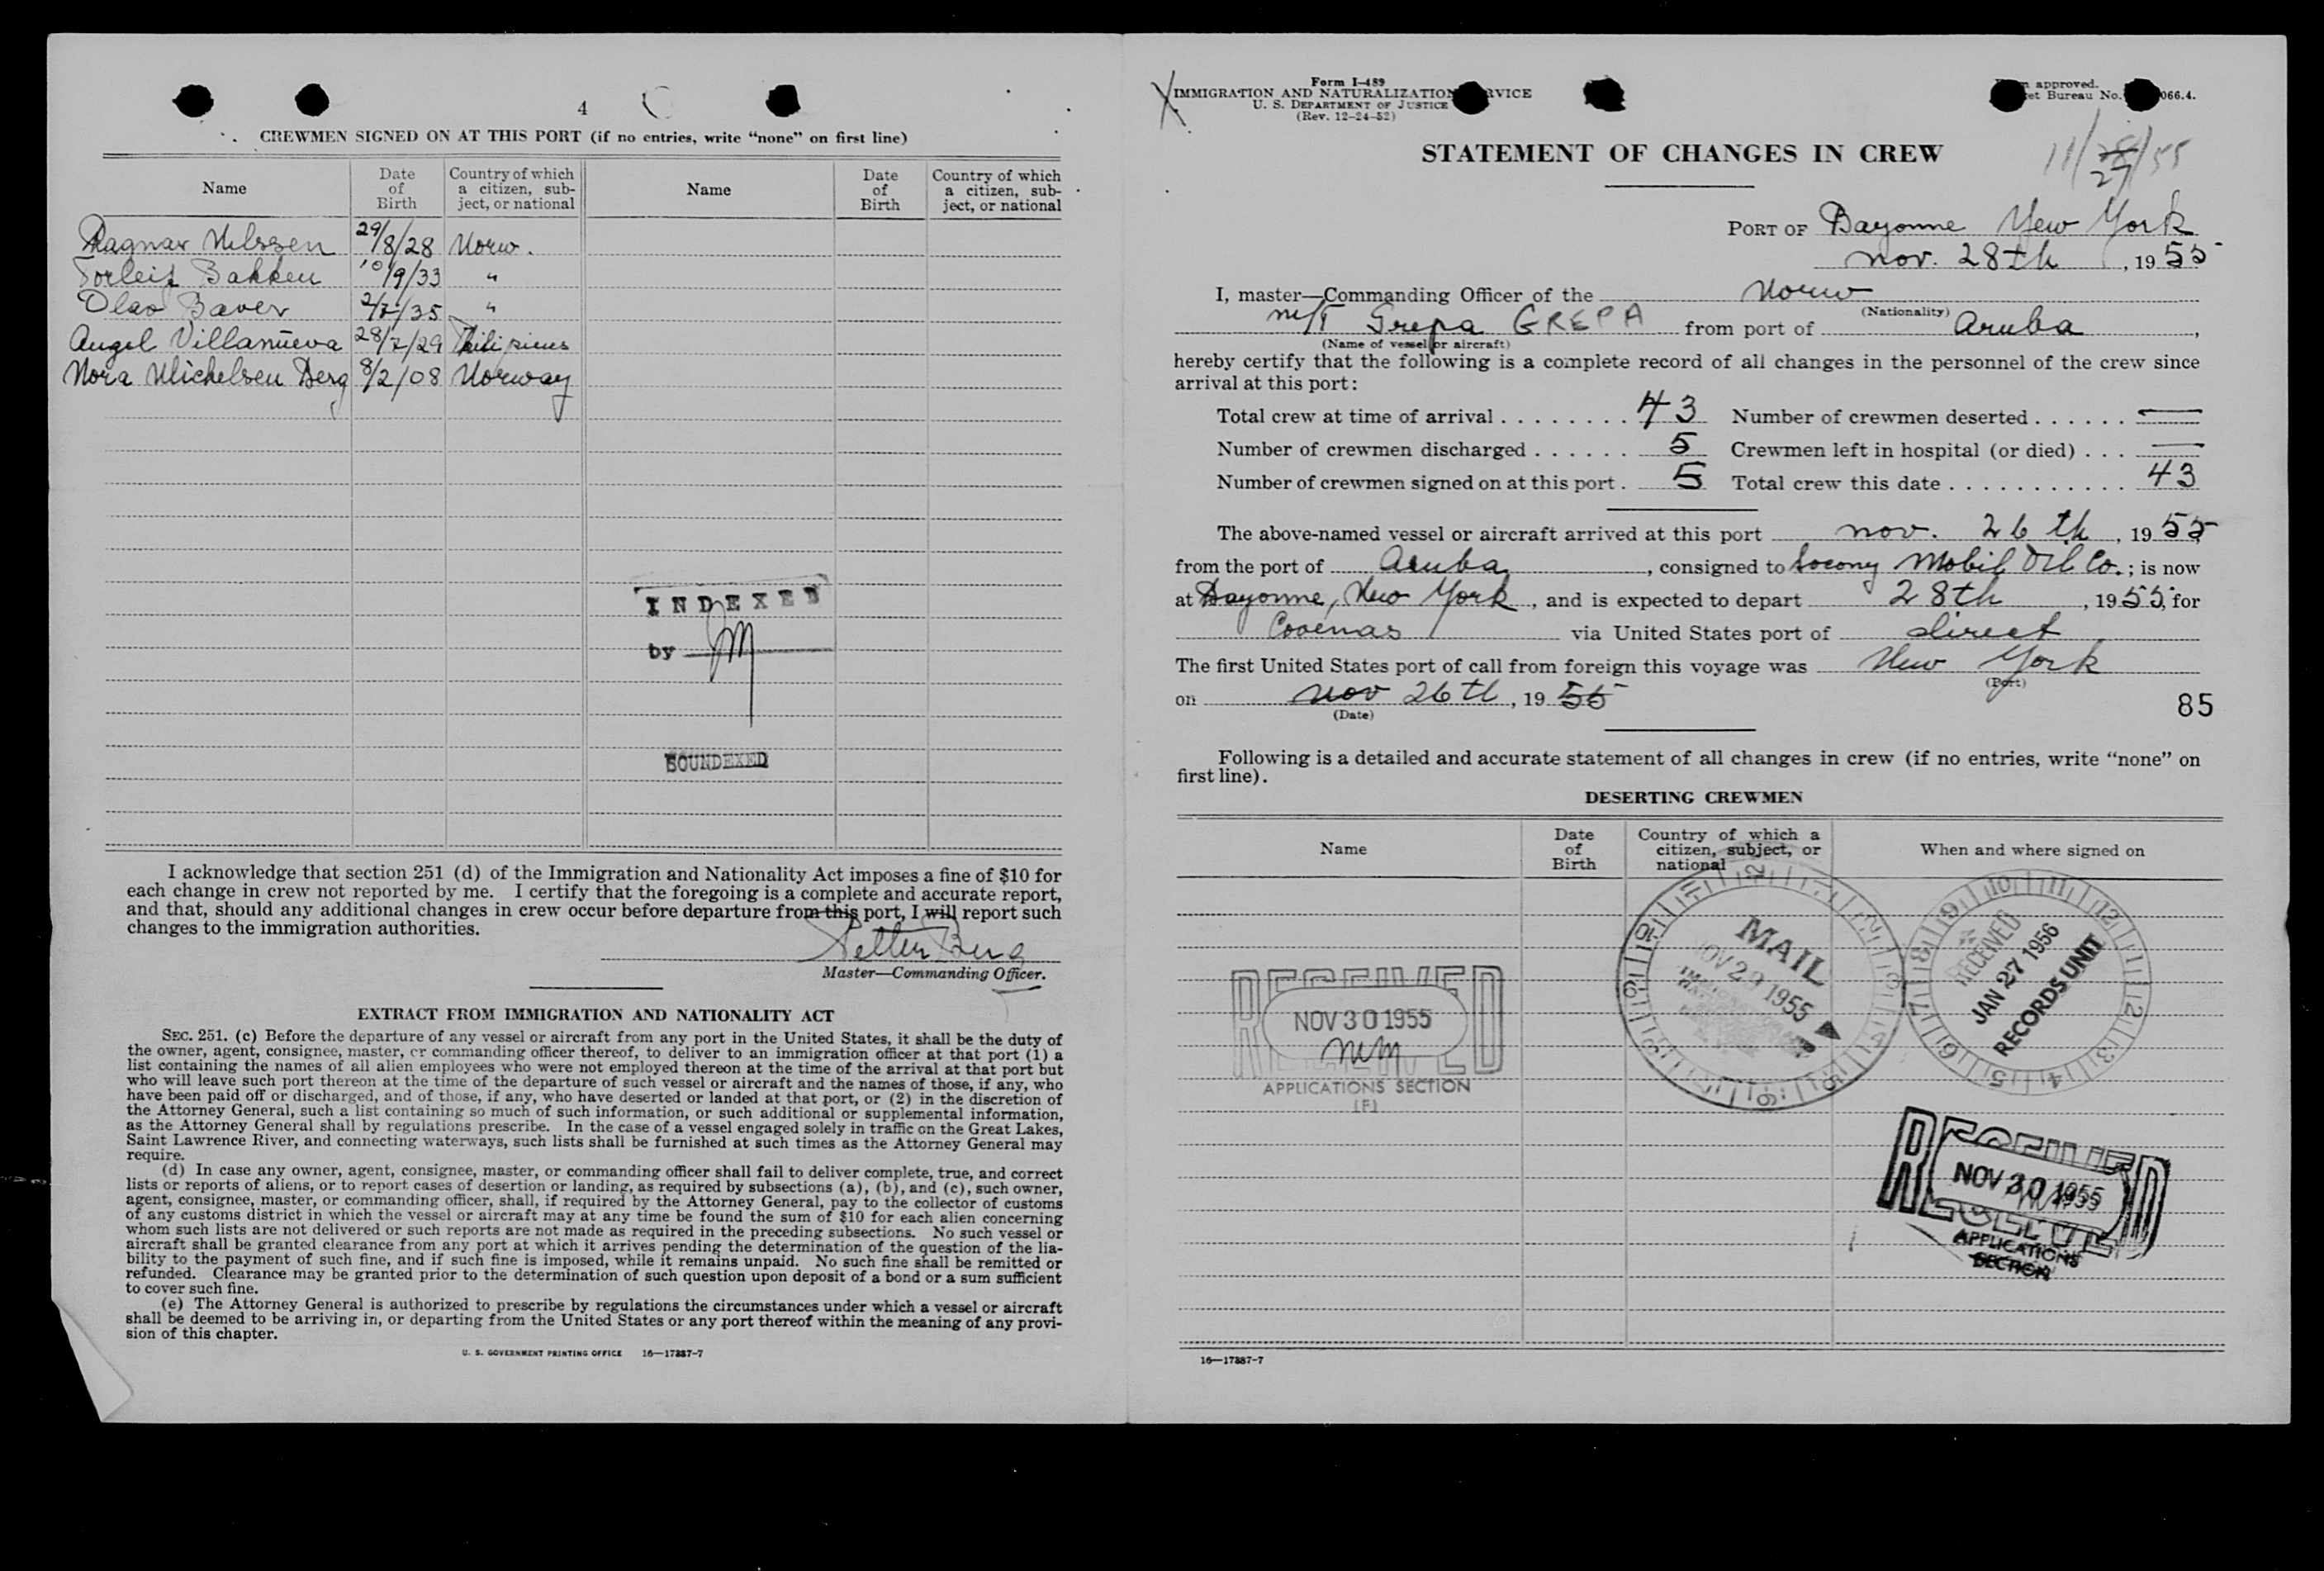 4
CREWMEN SIGNED ON AT THIS PORT (if no entries, write “none” on first line)
Name Date of Birth Country of which a citizen, subject, or national Name Date of Birth Country of which a citizen, subject, or national
Ragnar Nilssen 29/8/28 Norw.
Torleif Bakken 10/9/33 "
Olav Baver 2/7/35 "
Angel Villanueva 28/7/29
Nora Michelsen Berg 8/2/08 Norway
INDEXED
by
SOUNDEXED
I acknowledge that section 251 (d) of the Immigration and Nationality Act imposes a fine of $10 for
each change in crew not reported by me. I certify that the foregoing is a complete and accurate report,
and that, should any additional changes in crew occur before departure from this port, I will report such
changes to the immigration authorities.
Petter Berg
Master—Commanding Officer.
EXTRACT FROM IMMIGRATION AND NATIONALITY ACT
SEC. 251. (c) Before the departure of any vessel or aircraft from any port in the United States, it shall be the duty of
the owner, agent, consignee, master, or commanding officer thereof, to deliver to an immigration officer at that port (1) a
list containing the names of all alien employees who were not employed thereon at the time of the arrival at that port but
who will leave such port thereon at the time of the departure of such vessel or aircraft and the names of those, if any, who
have been paid off or discharged, and of those, if any, who have deserted or landed at that port, or (2) in the discretion of
the Attorney General, such a list containing so much of such information, or such additional or supplemental information,
as the Attorney General shall by regulations prescribe. In the case of a vessel engaged solely in traffic on the Great Lakes,
Saint Lawrence River, and connecting waterways, such lists shall be furnished at such times as the Attorney General may
require.
(d) In case any owner, agent, consignee, master, or commanding officer shall fail to deliver complete, true, and correct
lists or reports of aliens, or to report cases of desertion or landing, as required by subsections (a), (b), and (c), such owner,
agent, consignee, master, or commanding officer, shall, if required by the Attorney General, pay to the collector of customs
of any customs district in which the vessel or aircraft may at any time be found the sum of $10 for each alien concerning
whom such lists are not delivered or such reports are not made as required in the preceding subsections. No such vessel or
aircraft shall be granted clearance from any port at which it arrives pending the determination of the question of the lia-
bility to the payment of such fine, and if such fine is imposed, while it remains unpaid. No such fine shall be remitted or
refunded. Clearance may be granted prior to the determination of such question upon deposit of a bond or a sum sufficient
to cover such fine.
(e) The Attorney General is authorized to prescribe by regulations the circumstances under which a vessel or aircraft
shall be deemed to be arriving in, or departing from the United States or any port thereof within the meaning of any provi-
sion of this chapter.
U. S. GOVERNMENT PRINTING OFFICE 16—17387-7
Form I-489
IMMIGRATION AND NATURALIZATION RVICE
U. S. DEPARTMENT OF JUSTICE
(Rev. 12-24-52)
approved.
et Bureau No. 066.4.
STATEMENT OF CHANGES IN CREW
11/28/55
27
PORT OF Bayonne New York
Nov. 28th, 1955
I, master—Commanding Officer of the Norw
(Nationality)
M/T Grepa GREPA from port of Aruba,
(Name of vessel or aircraft)
hereby certify that the following is a complete record of all changes in the personnel of the crew since
arrival at this port:
Total crew at time of arrival 43 Number of crewmen deserted —
Number of crewmen discharged 5 Crewmen left in hospital (or died) —
Number of crewmen signed on at this port 5 Total crew this date 43
The above-named vessel or aircraft arrived at this port Nov. 26th, 1955
from the port of Aruba, consigned to Socony Mobil Oil Co.; is now
at Bayonne, New York, and is expected to depart 28th, 1955, for
Covenas via United States port of direct
The first United States port of call from foreign this voyage was New York
(Port)
on Nov 26th, 1955
(Date)
85
Following is a detailed and accurate statement of all changes in crew (if no entries, write “none” on
first line).
DESERTING CREWMEN
Name Date of Birth Country of which a citizen, subject, or national When and where signed on
MAIL
NOV 29 1955
RECEIVED
JAN 27 1956
RECORDS UNIT
RECEIVED
NOV 30 1955
APPLICATIONS SECTION
(F)
RECEIVED
NOV 30 1955
APPLICATIONS
SECTION
16—17387-7